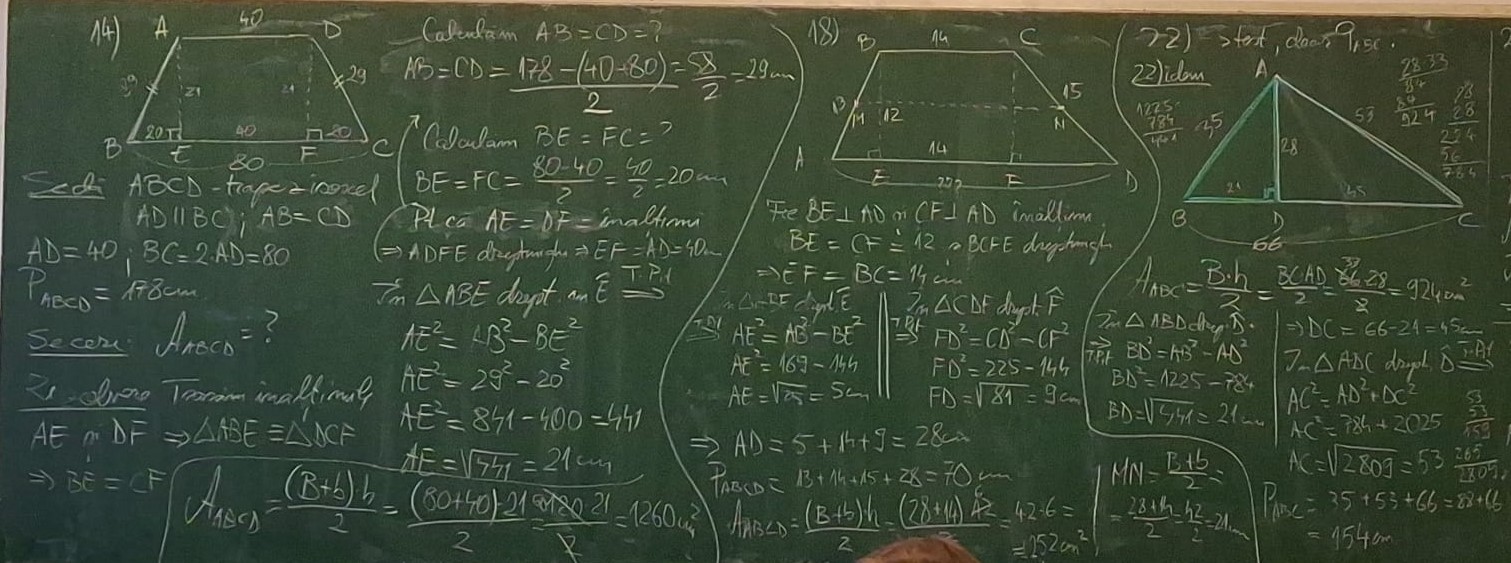 14)
A 40 D
29 21 21 29
20 40 20
B E F C
80
ABCD - trapez isoscel
AD || BC ; AB = CD
AD = 40 ; BC = 2·AD = 80
P_ABCD = 178cm
Se cere: A_ABCD = ?
Rezolvare Trasăm înălțimile
AE și DF ⇒ △ABE ≡ △DCF
⇒ BE = CF
Calculăm AB = CD = ?
AB = CD = (178 - (40+80))/2 = 58/2 = 29cm
Calculăm BE = FC = ?
BE = FC = (80-40)/2 = 40/2 = 20cm
Pt. că AE = DF = înălțimi
⇒ ADFE dreptunghi ⇒ EF = AD = 40cm
În △ABE drept. în Ê T.Pit ⇒
AE² = AB² - BE²
AE² = 29² - 20²
AE² = 841 - 400 = 441
AE = √441 = 21cm
A_ABCD = (B+b)·h/2 = (80+40)·21/2 = 120·21/2 = 1260cm²
18)
B 14 C
13 15
M 12 N
14
A E F D
Fie BE ⊥ AD și CF ⊥ AD înălțimi
BE = CF = 12 ⇒ BCFE dreptunghi
⇒ EF = BC = 14cm
AE² = AB² - BE²
AE² = 169 - 144
AE = √25 = 5cm
În △CDF drept. F̂
T.Pit ⇒ FD² = CD² - CF²
FD² = 225 - 144
FD = √81 = 9cm
⇒ AD = 5 + 14 + 9 = 28cm
P_ABCD = 13 + 14 + 15 + 28 = 70cm
A_ABCD = (B+b)·h/2 = (28+14)·12 = 42·6 =
= 252cm²
MN = (B+b)/2 =
= (28+14)/2 = 42/2 = 21cm
22)
22) idem
A
35 28 53
21 45
B D C
66
1225-
784
441
28·33
84
84
924
28
28
224
56
784
A_ABC = B·h/2 = BC·AD/2 = 66·28/2 = 924cm²
În △ABD drep. D̂
T.Pit ⇒ BD² = AB² - AD²
BD² = 1225 - 784
BD = √441 = 21cm
⇒ DC = 66 - 21 = 45cm
În △ADC drept. D̂ T.Pit ⇒
AC² = AD² + DC²
AC² = 784 + 2025
AC = √2809 = 53
53
53
159
265
2809
P_ABC = 35 + 53 + 66 = 88 + 66
= 154cm